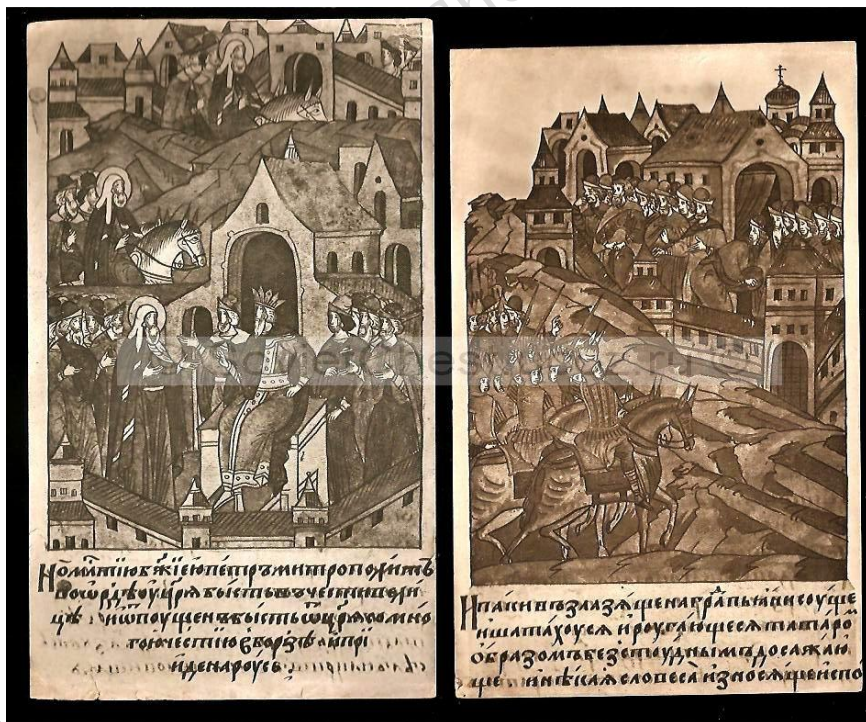 Но млтїю бжїею петръ митрополитъ
во ѡрдѣ оу цря бысть въ чести вели
цѣ и ѿпоущенъ бысть ѿ цря со мно
гою честїю вборзѣ и прї
иде на роусь
И паки възлазяще на град пьяни соуще
и шатахоуся и роугающеся татаро
образомъ безстоудным досажаю
ще и нѣкая словеса износяще испо